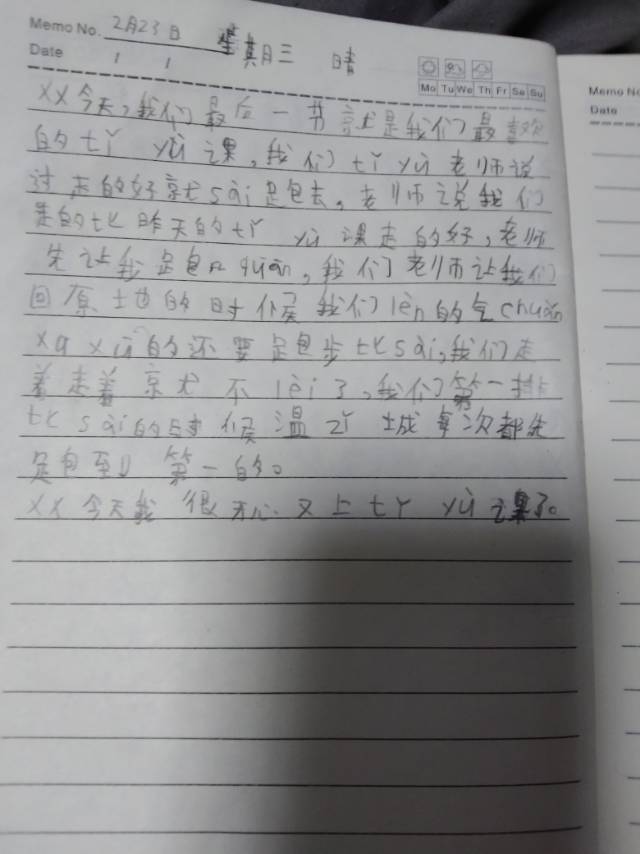 Memo No. 2月23日 星期三 晴
Date / /
Mo Tu We Th Fr Sa Su
Memo No
Date
XX今天,我们最后一节就是我们最喜欢
的tǐ yù课,我们tǐ yù老师说
过,走的好就sài跑去。老师说我们
昨天的tǐ yù课走的好,老师
先让我跑几quān,我们老师让我们
回原地的时候我们lèn的气chuǎn
xū xū的还要跑步bǐ sài,我们走
着走着就不lèi了,我们第一排
bǐ sài的时候温zǐ城每次都先
跑到第一的。
XX今天我很开心又上tǐ yù课了。